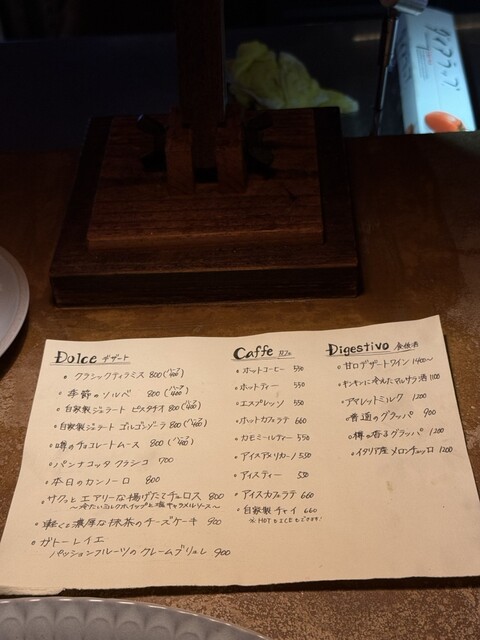 ダイアラップ
Dolce デザート
・クラシックティラミス 800 (ハーフ 400)
・季節のソルベ 800 (ハーフ 400)
・自家製ジェラート ピスタチオ 800 (ハーフ 400)
・自家製ジェラート ゴルゴンゾーラ 800 (ハーフ 400)
・噂のチョコレートムース 800 (ハーフ 400)
・パンナコッタ クラシコ 700
・本日のカンノーロ 800
・サクッとエアリーな揚げたてチュロス 800
〜冷たいミルクホイップと塩キャラメルソース〜
・軽くて濃厚な抹茶のチーズケーキ 900
・ガトーレイエ
パッションフルーツのクレームブリュレ 900
Caffe
・ホットコーヒー 550
・ホットティー 550
・エスプレッソ 550
・ホットカフェラテ 660
・カモミールティー 550
・アイスアメリカーノ 550
・アイスティー 550
・アイスカフェラテ 660
・自家製チャイ 660
※HOTもICEもできます!
Digestivo 食後酒
・甘口デザートワイン 1400〜
・キンキンに冷えたマルサラ酒 1100
・アマレットミルク 1200
・普通のグラッパ 900
・樽の香るグラッパ 1200
・イタリア産 メロンチェッロ 1200